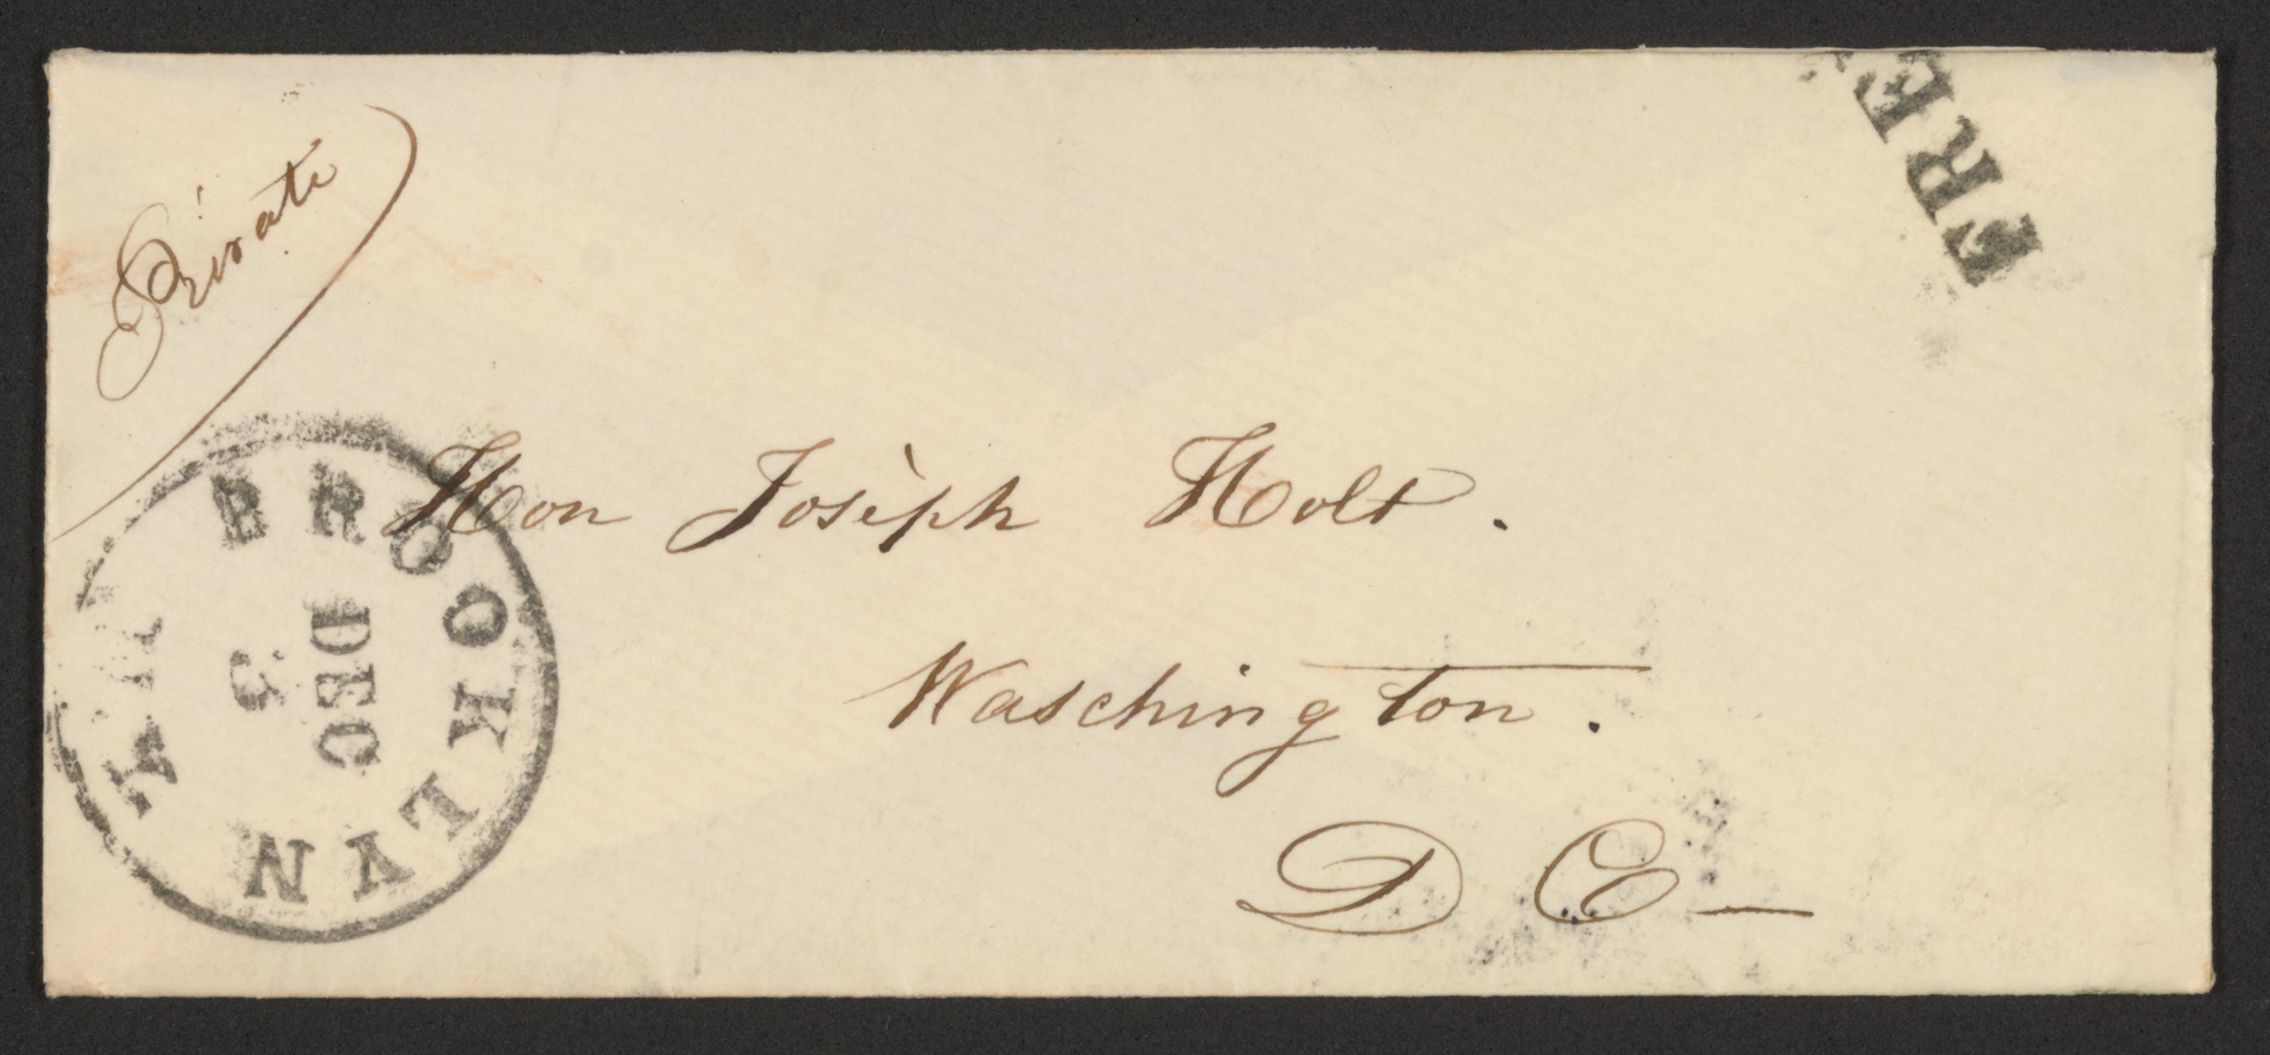 Private
FREE
Hon Joseph Holt.
Waschington.
D C—
BROOKLYN N.Y.
DEC
3